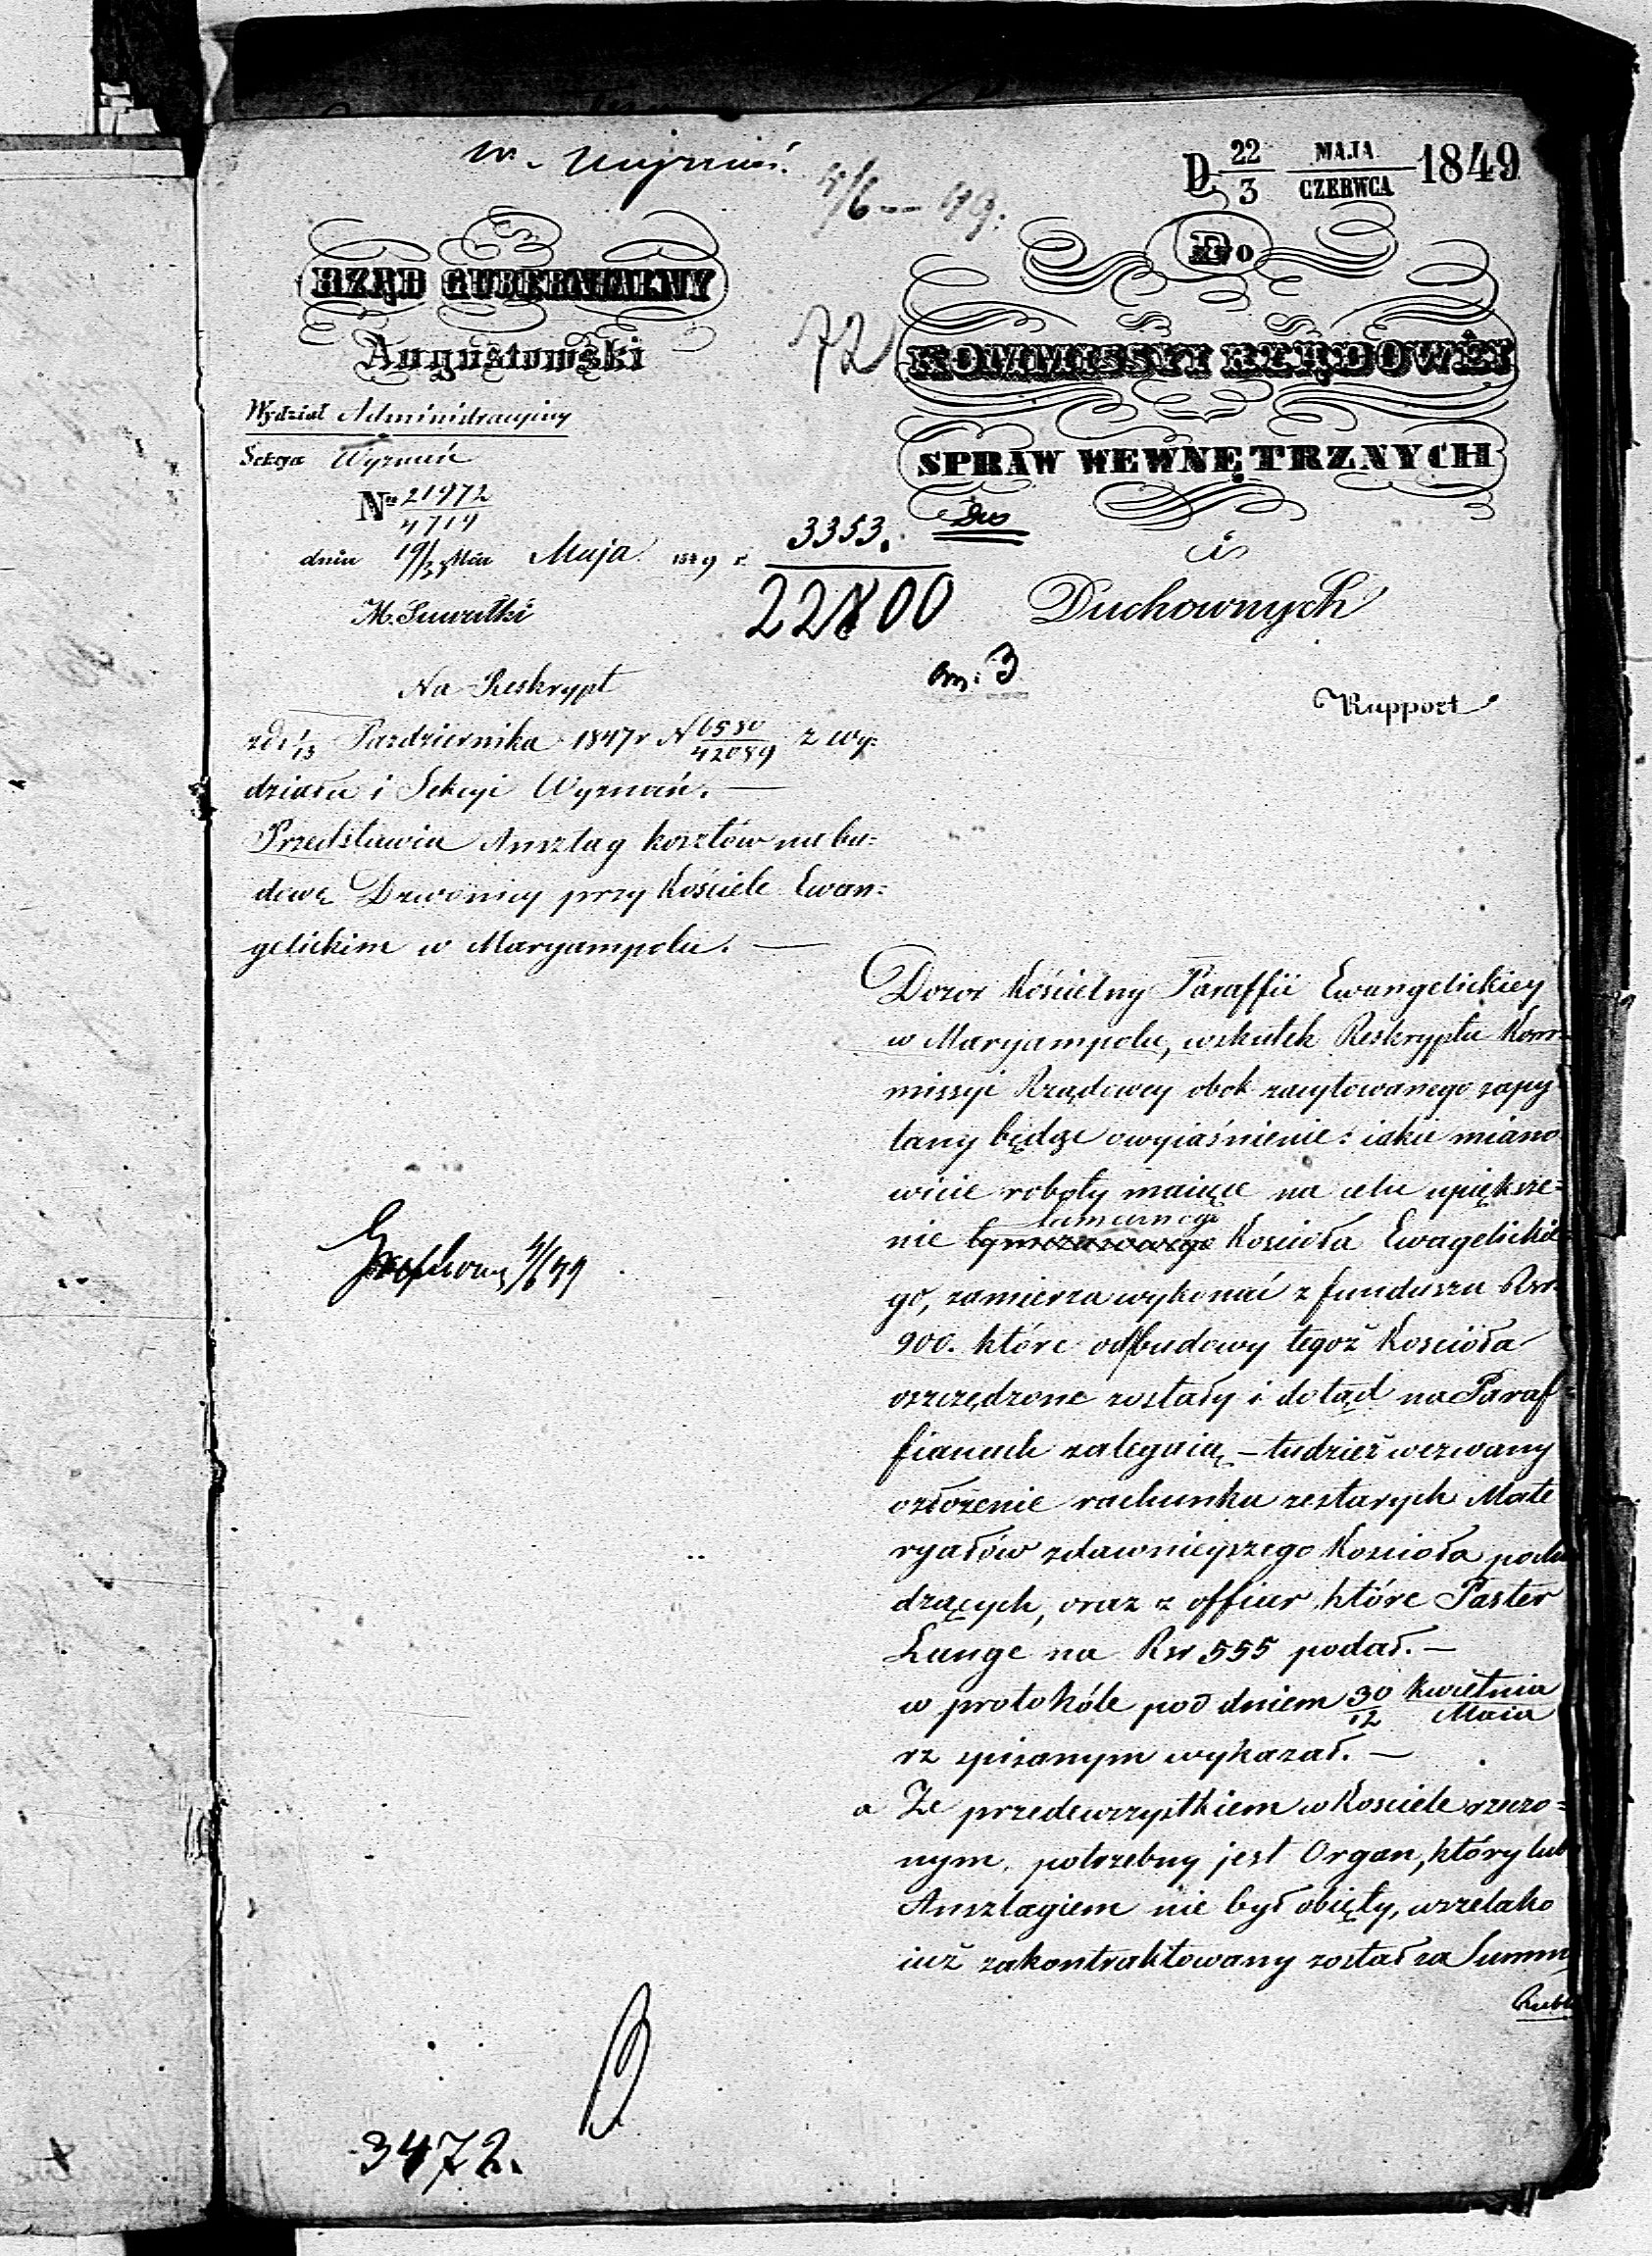 W. Wyznań.
4/6 – 49.
D. 22/3 MAJA/CZERWCA 1849
RZĄD GUBERNIALNY
Augustowski
72
Do
KOMMISSYI RZĄDOWÉJ
SPRAW WEWNĘTRZNYCH
i
Duchownych
Rapport
Wydział Administracyjny
Sekcya Wyznań
No 21972/4714
dnia 19/31 Mca Maja 1849 r.
M. Suwałki
3353.
22800
3
Na Reskrypt
z d. 1/13 Pazdziernika 1847 r N 6580/42089 z wy=
działu i Sekcyi Wyznań. —
Przedstawia Anszlag kosztów na bu=
dowę Dzwonicy przy Kościele Ewan=
gelickim w Maryampolu. —
Dozor Kościelny Paraffii Ewangelickiey
w Maryampolu, wskutek Reskryptu Kom=
missyi Rządowey obok zacytowanego zapy=
tany będąc o wyiaśnienie: iakie miano
wicie roboty maiące na celu upiększe=
nie tymczasowego tamecznego Koscioła Ewagelickie
go, zamierza wykonać z funduszu Rsr.
900. które od budowy tegoż Kościoła
oszczędzone zostały i dotąd na Paraf=
fianach zalegaią, – tudzież wezwany
o złożenie rachunku ze starych Mate
ryałów z dawnieyszego Koscioła pocho
dzących, oraz z offiar, które Pastor
Lange na Rsr 555 podał. —
w protokóle pod dniem 30/12 Kwietnia/Maia
rz spisanym wykazał. —
a Ze przedewszystkiem w Kosciele rzeczo=
nym, potrzebny jest Organ, który lubo
Anszlagiem nie był obięty, wszelako
iuż zakontraktowany został za Summę
Rubli
3472.